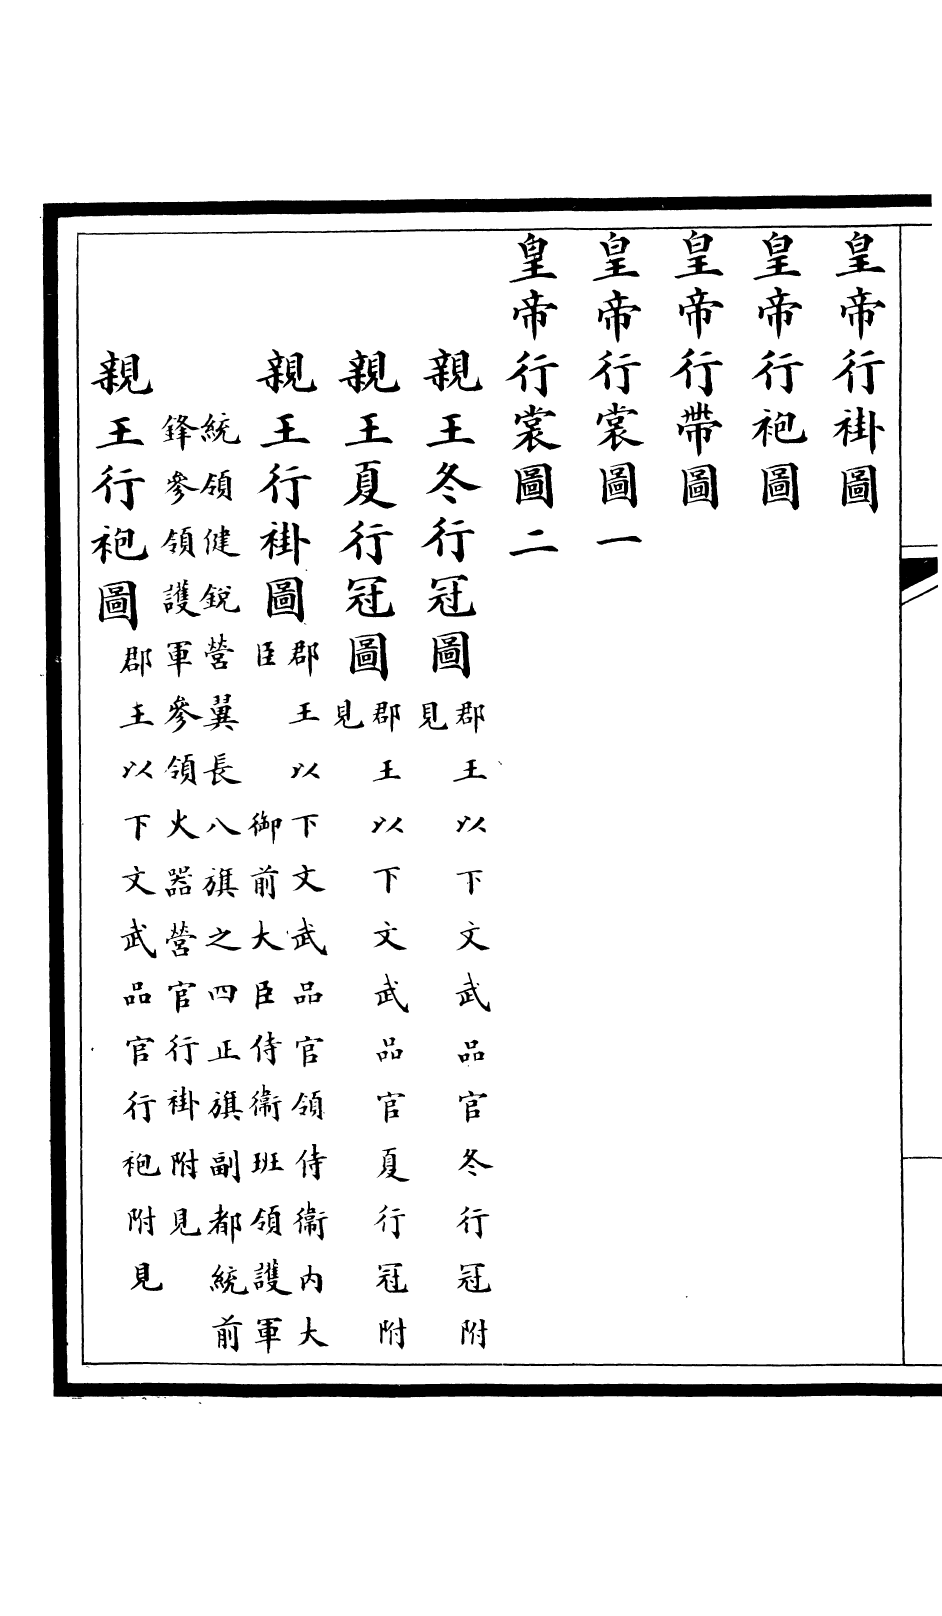 皇帝行褂圖
皇帝行袍圖
皇帝行帶圖
皇帝行裳圖一
皇帝行裳圖二
親王冬行冠圖郡王以下文武品官冬行冠附
見
親王夏行冠圖郡王以下文武品官夏行冠附
見
親王行褂圖郡王以下文武品官領侍衞內大
臣 御前大臣侍衞班領護軍
統領健銳營翼長八旗之四正旗副都統前
鋒參領護軍參領火器營官行褂附見
親王行袍圖郡王以下文武品官行袍附見